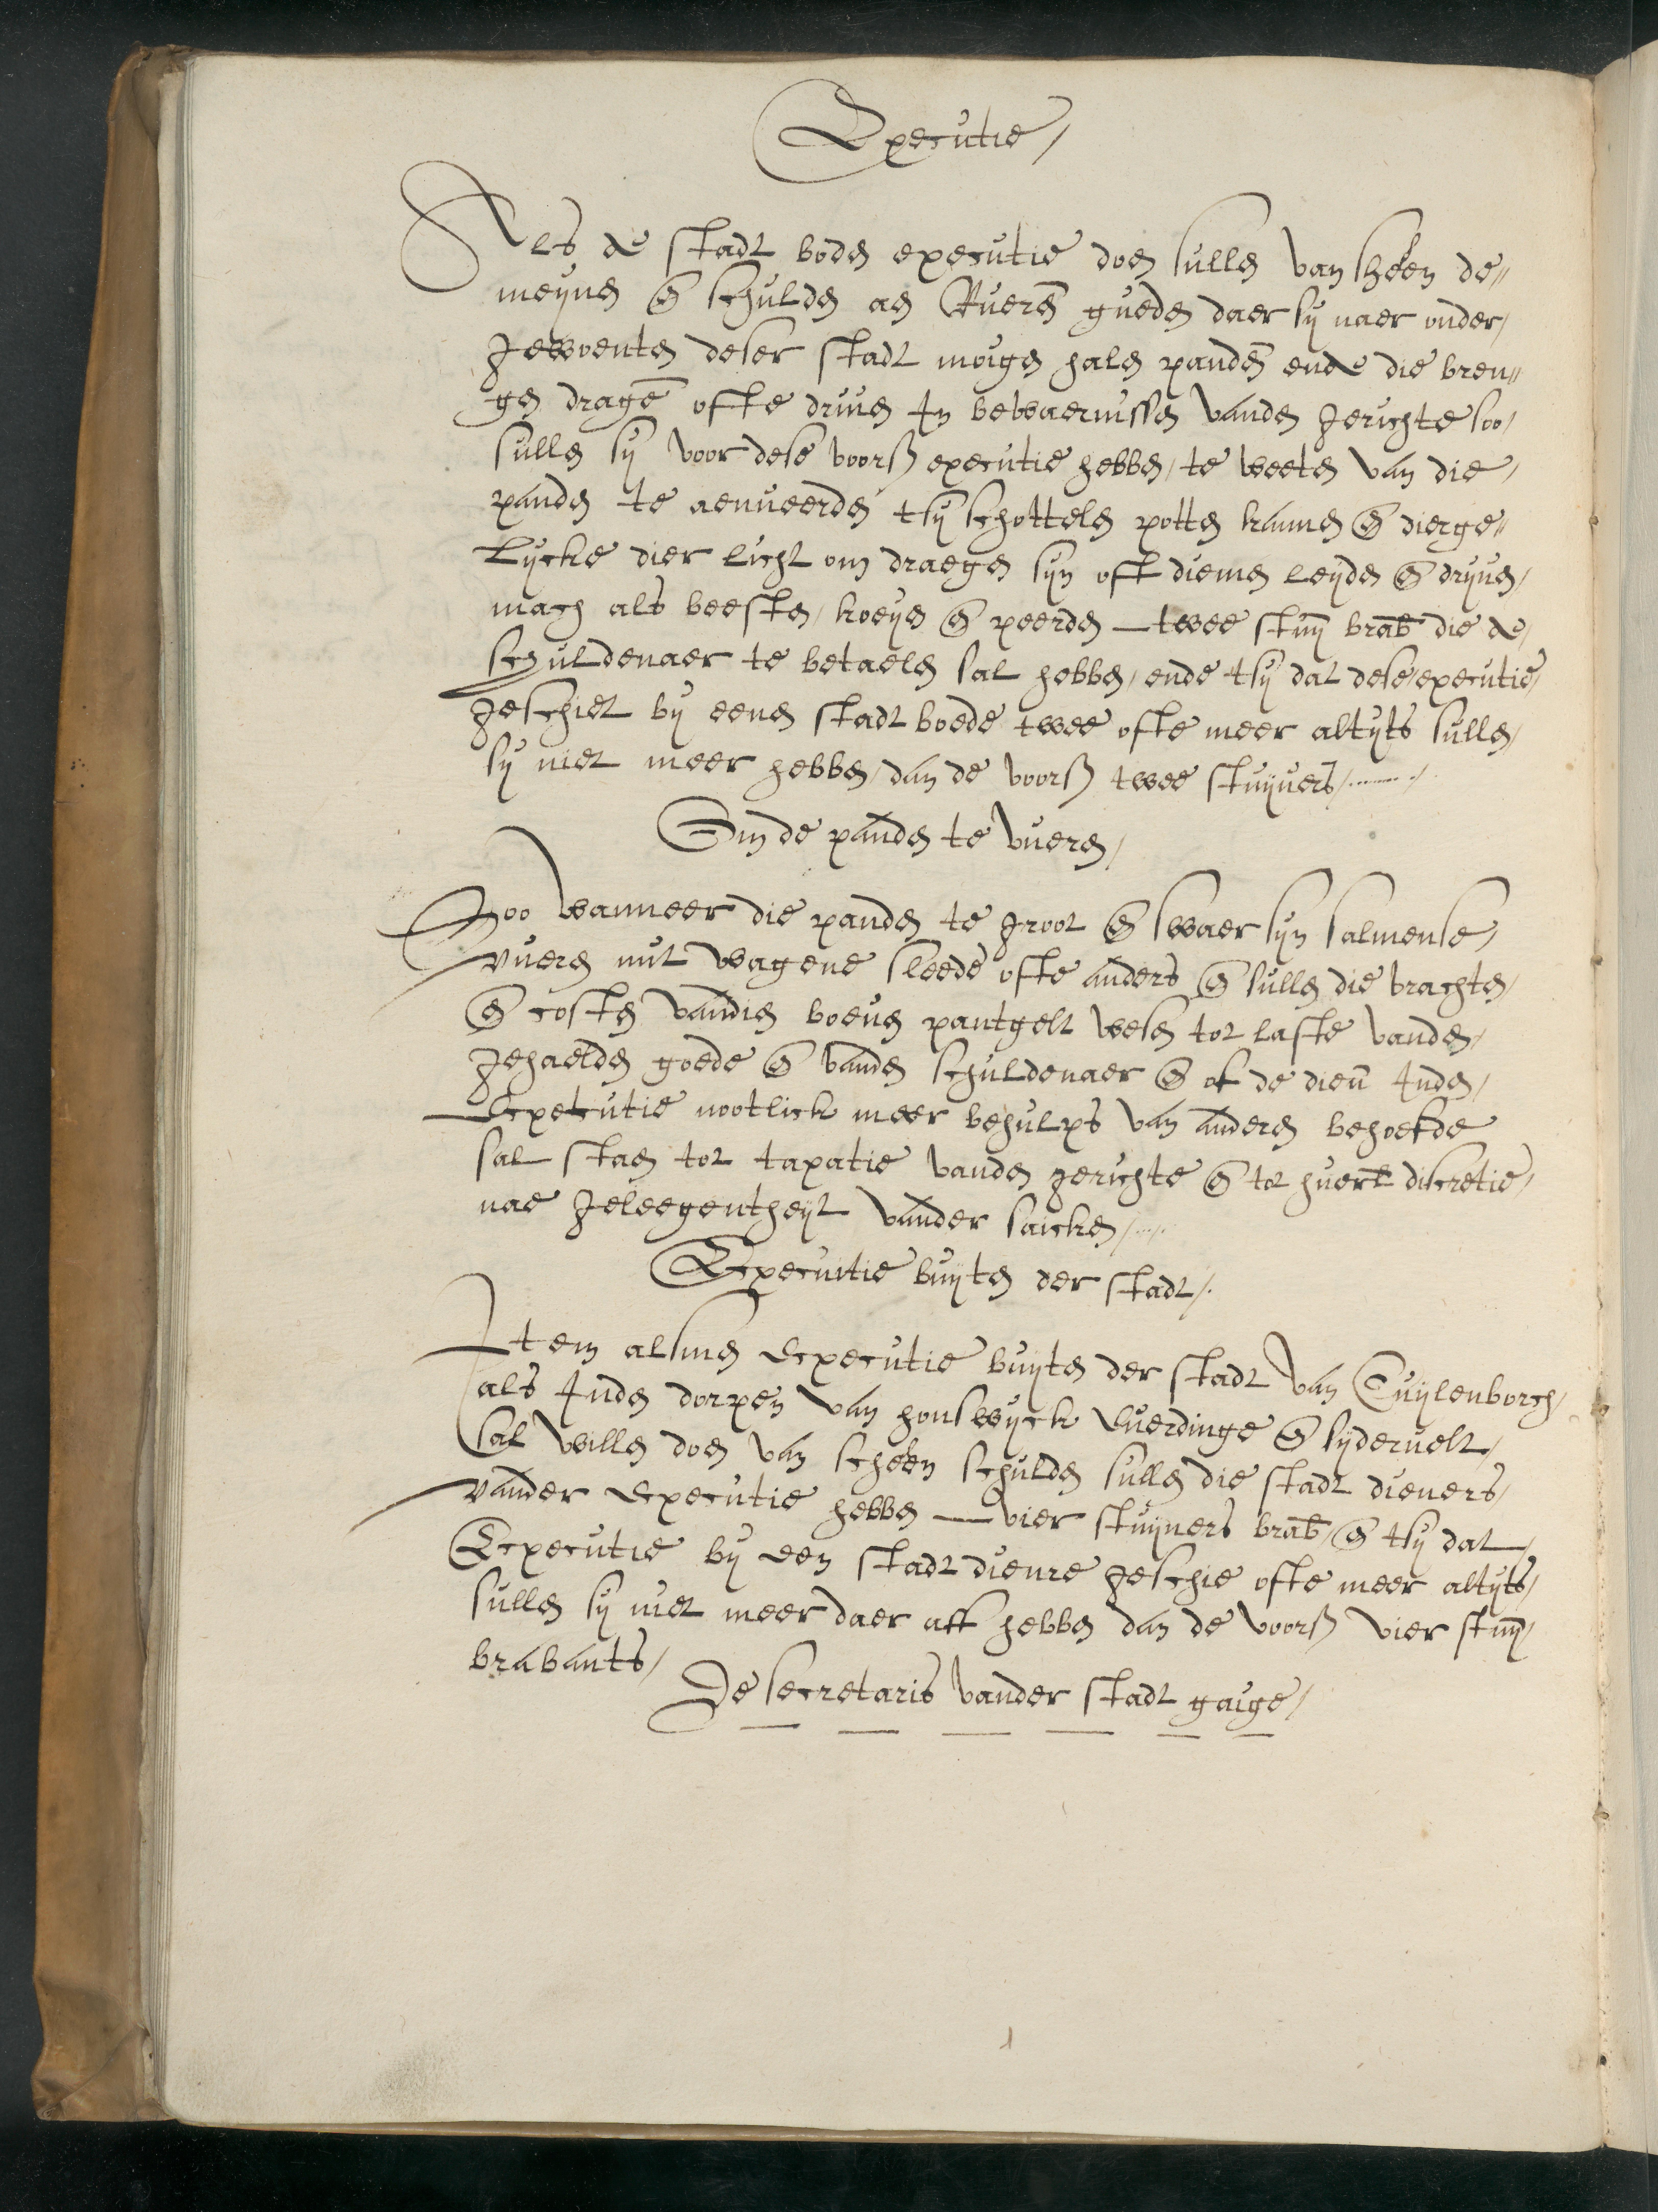 Executie /
Als de stadt boden executie doen sullen van sheeren de„
meynen en schulden aen Rueren gueden daer sy naer onder /
gewoenten deser stadt moigen halen panden ende die bren„
gen dragen ofte driven In bewaernissen vanden gerichte soo /
sullen sy voor dese voors executie hebben / te weeten van die /
panden te aenveerden tsy schottelen potten kannen en dierge„
lycke dier licht om draegen syn oft diemen leyden en dryven /
mach als beesten / koeyen en peerden — twee stuy brab die de /
schuldenaer te betaelen sal hebben / ende tsy dat dese executie /
geschiet by eenen stadt boede twee ofte meer altyts sullen /
sy niet meer hebben / dan de voors twee stuyvers /
Om de panden te vueren /
Soo wanneer die panden te groot en swaer syn salmense /
vueren mit wagene sleede ofte anders en sullen die vrachten /
en costen vandien boven pantgelt wesen tot laste vanden /
gehaelden goede en vanden schuldenaer en of de dien Inden /
Executie nootlick meer behulps van anderen behoefde
sal staen tot taxatie vanden gerichte en tot huerl discretie /
nae geleegentheyt vander saicken /
Executie buyten der stadt /
Item alsmen executie buyten der stadt van Cuylenborch /
als Inden dorpen van honswyck Everdinge en sydervelt /
sal willen doen van scheeren schulden sullen die stadt dieners /
vander executie hebben — vier stuyvers brab / en tsy dat /
Executie by een stadt dienre geschie ofte meer altyts /
sullen sy niet meer daer aff hebben dan de voors vier stuy /
brabants /
De secretaris vander stadt gaige /